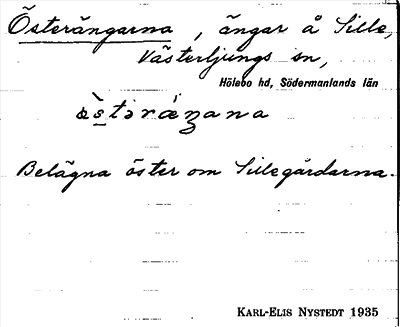 Österängarna, ängar å Sille,
Västerljungs sn,
Hölebo hd, Södermanlands län
Belägna öster om Sillegårdarna.
KARL-ELIS NYSTEDT 1935